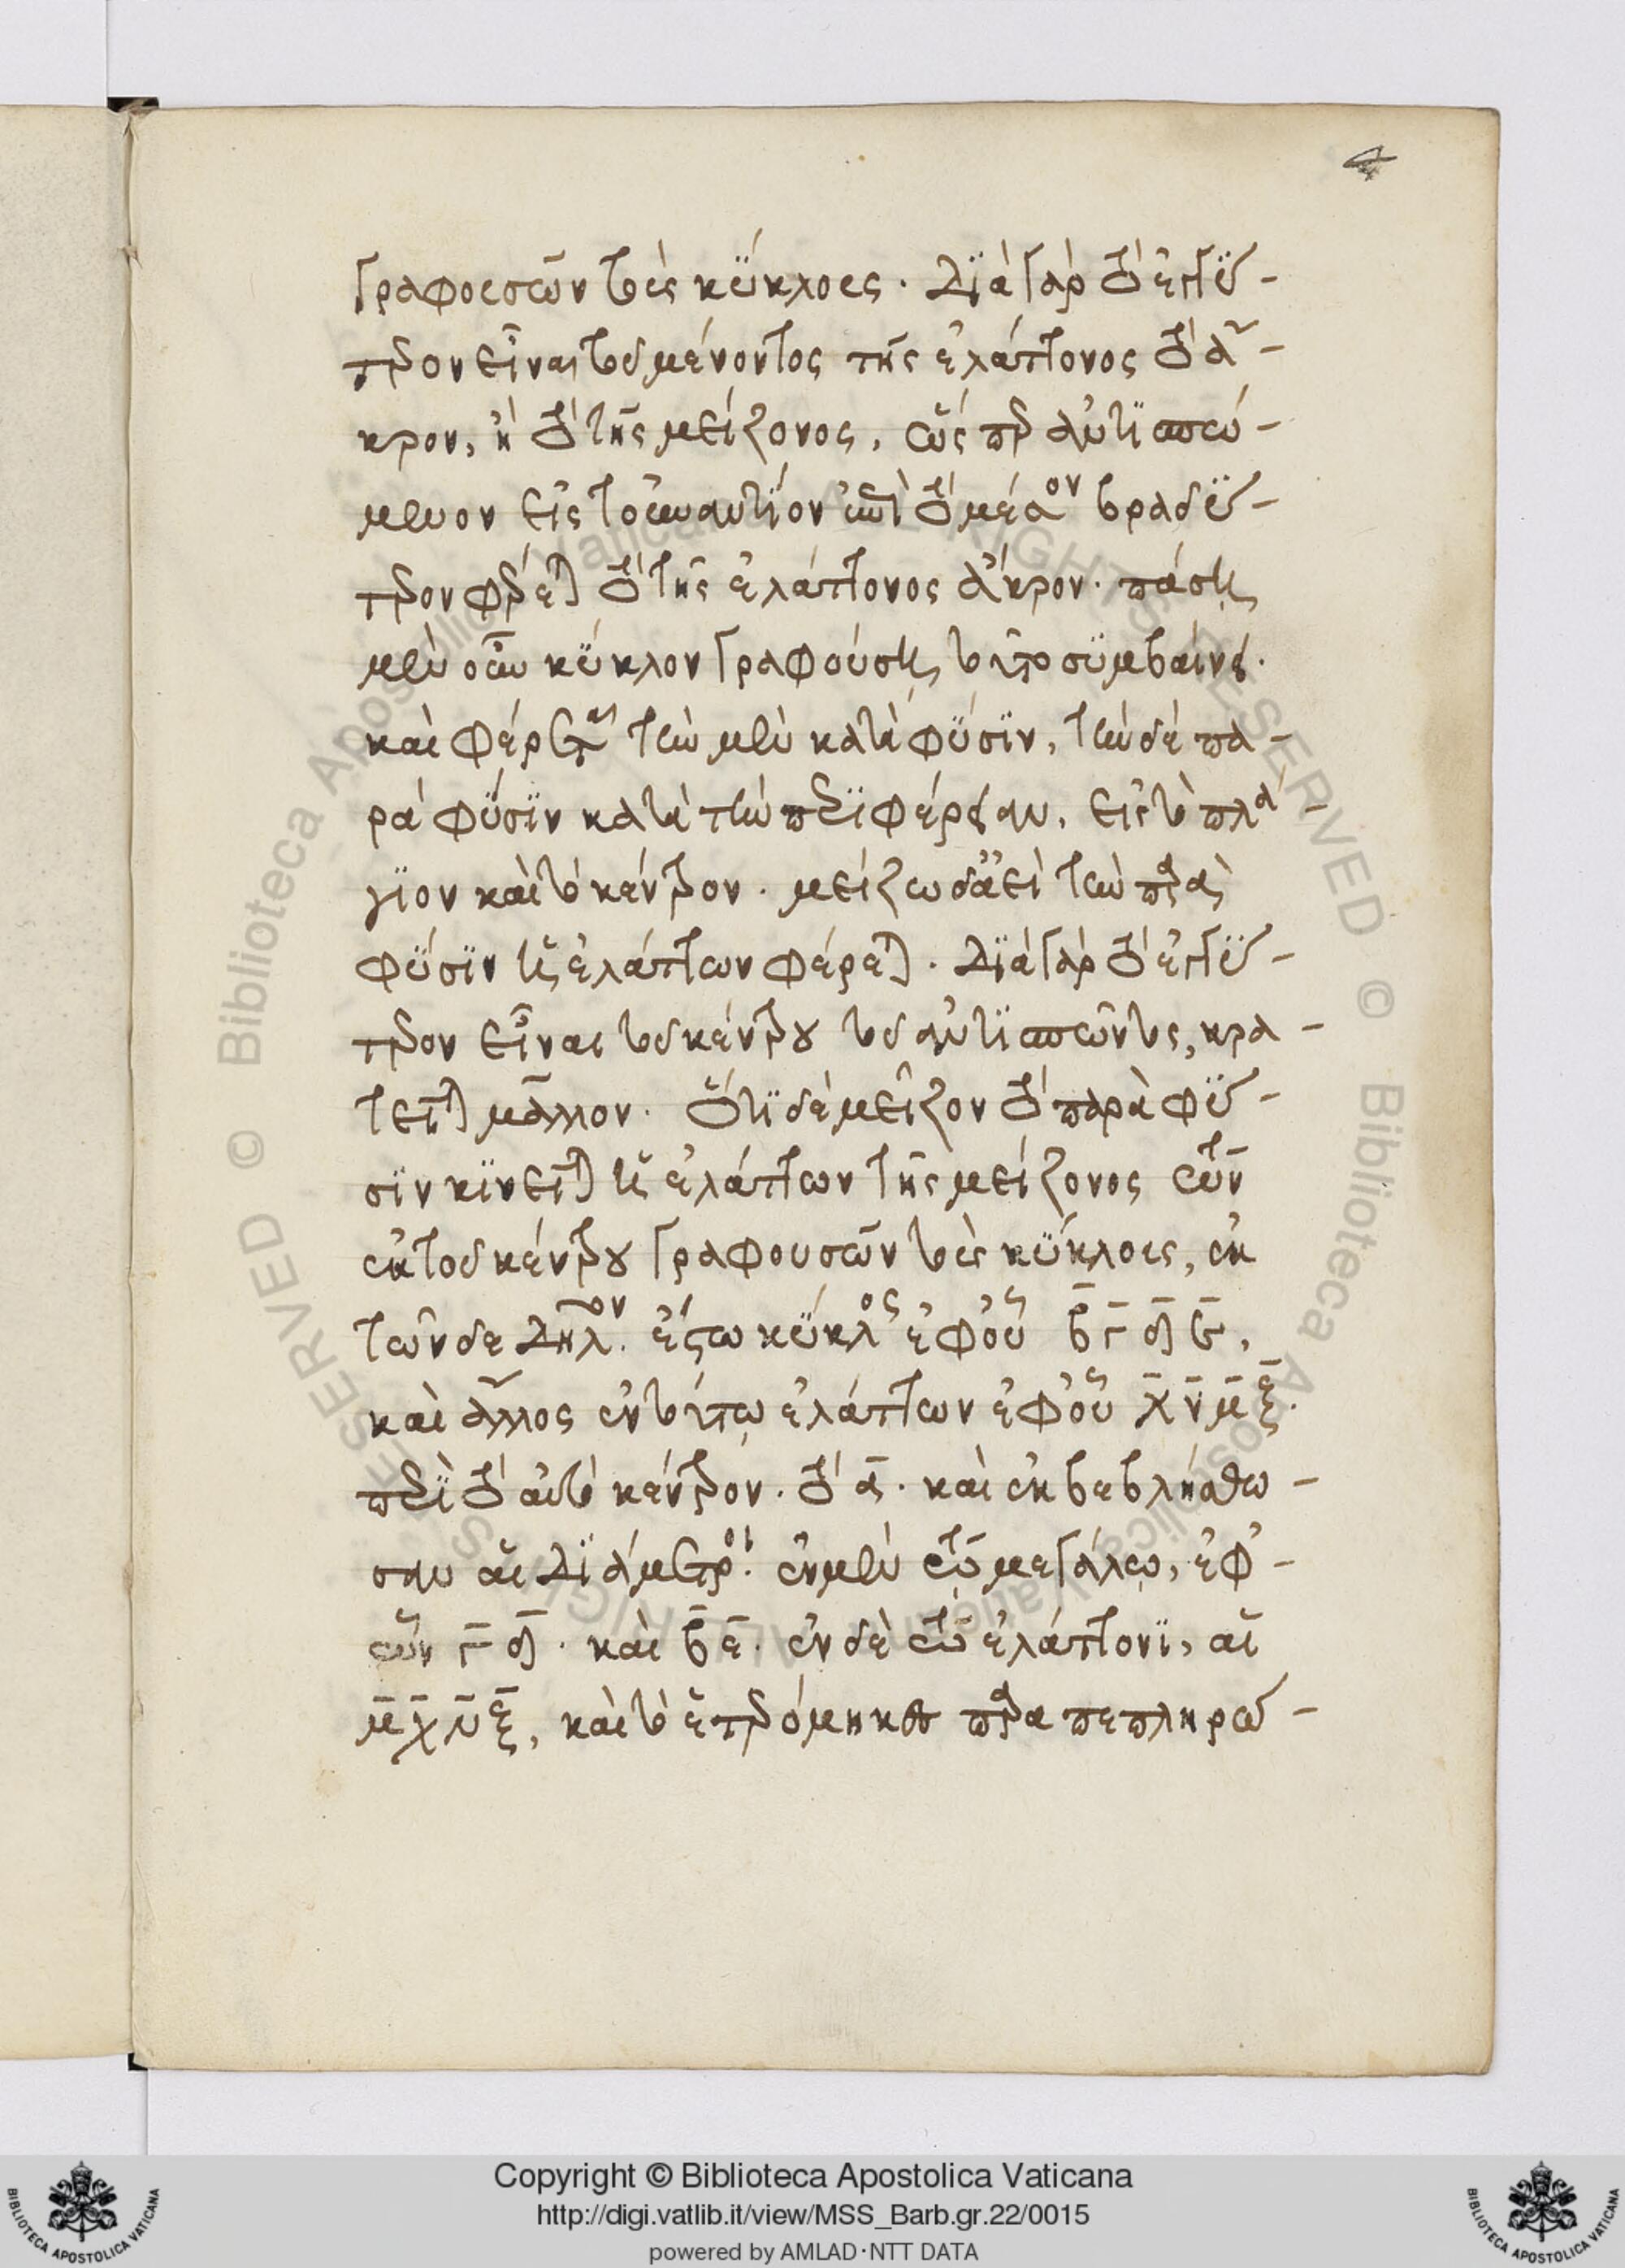 4
γραφουσῶν τοὺς κύκλους. διὰ γὰρ τὸ ἐγγύ-
τερον εἶναι τοῦ μένοντος τῆς ἐλάττονος τὸ ἄ-
κρον, ἢ τὸ τῆς μείζονος, ὥσπερ ἀντισπώ-
μενον εἰς τὸ ἐναντίον ἐπὶ τὸ μέσον βραδύ-
τερον φέρεται τὸ τῆς ἐλάττονος ἄκρον. πάσῃ
μὲν οὖν κύκλον γραφούσῃ τοῦτο συμβαίνει.
καὶ φέρεται τὴν μὲν κατὰ φύσιν, τὴν δὲ πα-
ρὰ φύσιν κατὰ τὴν περιφέρειαν, εἰς τὸ πλά-
γιον καὶ τὸ κέντρον. μείζω δ' ἀεὶ τὴν παρὰ
φύσιν ἡ ἐλάττων φέρεται. διὰ γὰρ τὸ ἐγγύ-
τερον εἶναι τοῦ κέντρου τοῦ ἀντισπῶντος, κρα-
τεῖται μᾶλλον. ὅτι δὲ μεῖζον τὸ παρὰ φύ-
σιν κινεῖται ἡ ἐλάττων τῆς μείζονος τῶν
ἐκ τοῦ κέντρου γραφουσῶν τοὺς κύκλους, ἐκ
τῶνδε δῆλον. ἔστω κύκλος ἐφ' οὗ β γ δ ε,
καὶ ἄλλος ἐν τούτῳ ἐλάττων ἐφ' οὗ χ ν μ ξ.
περὶ τὸ αὐτὸ κέντρον. τὸ α. καὶ ἐκβεβλήσθω-
σαν αἱ διάμετροι. ἐν μὲν τῷ μεγάλῳ, ἐφ'-
ὧν γ δ. καὶ β ε. ἐν δὲ τῷ ἐλάττονι, αἱ
μ χ ν ξ, καὶ τὸ ἑτερόμηκες παραπεπληρώ-
© Biblioteca Apostolica Vaticana ALL RIGHTS RESERVED
Copyright © Biblioteca Apostolica Vaticana
http://digi.vatlib.it/view/MSS_Barb.gr.22/0015
powered by AMLAD·NTT DATA
BIBLIOTECA APOSTOLICA VATICANA
BIBLIOTECA APOSTOLICA VATICANA